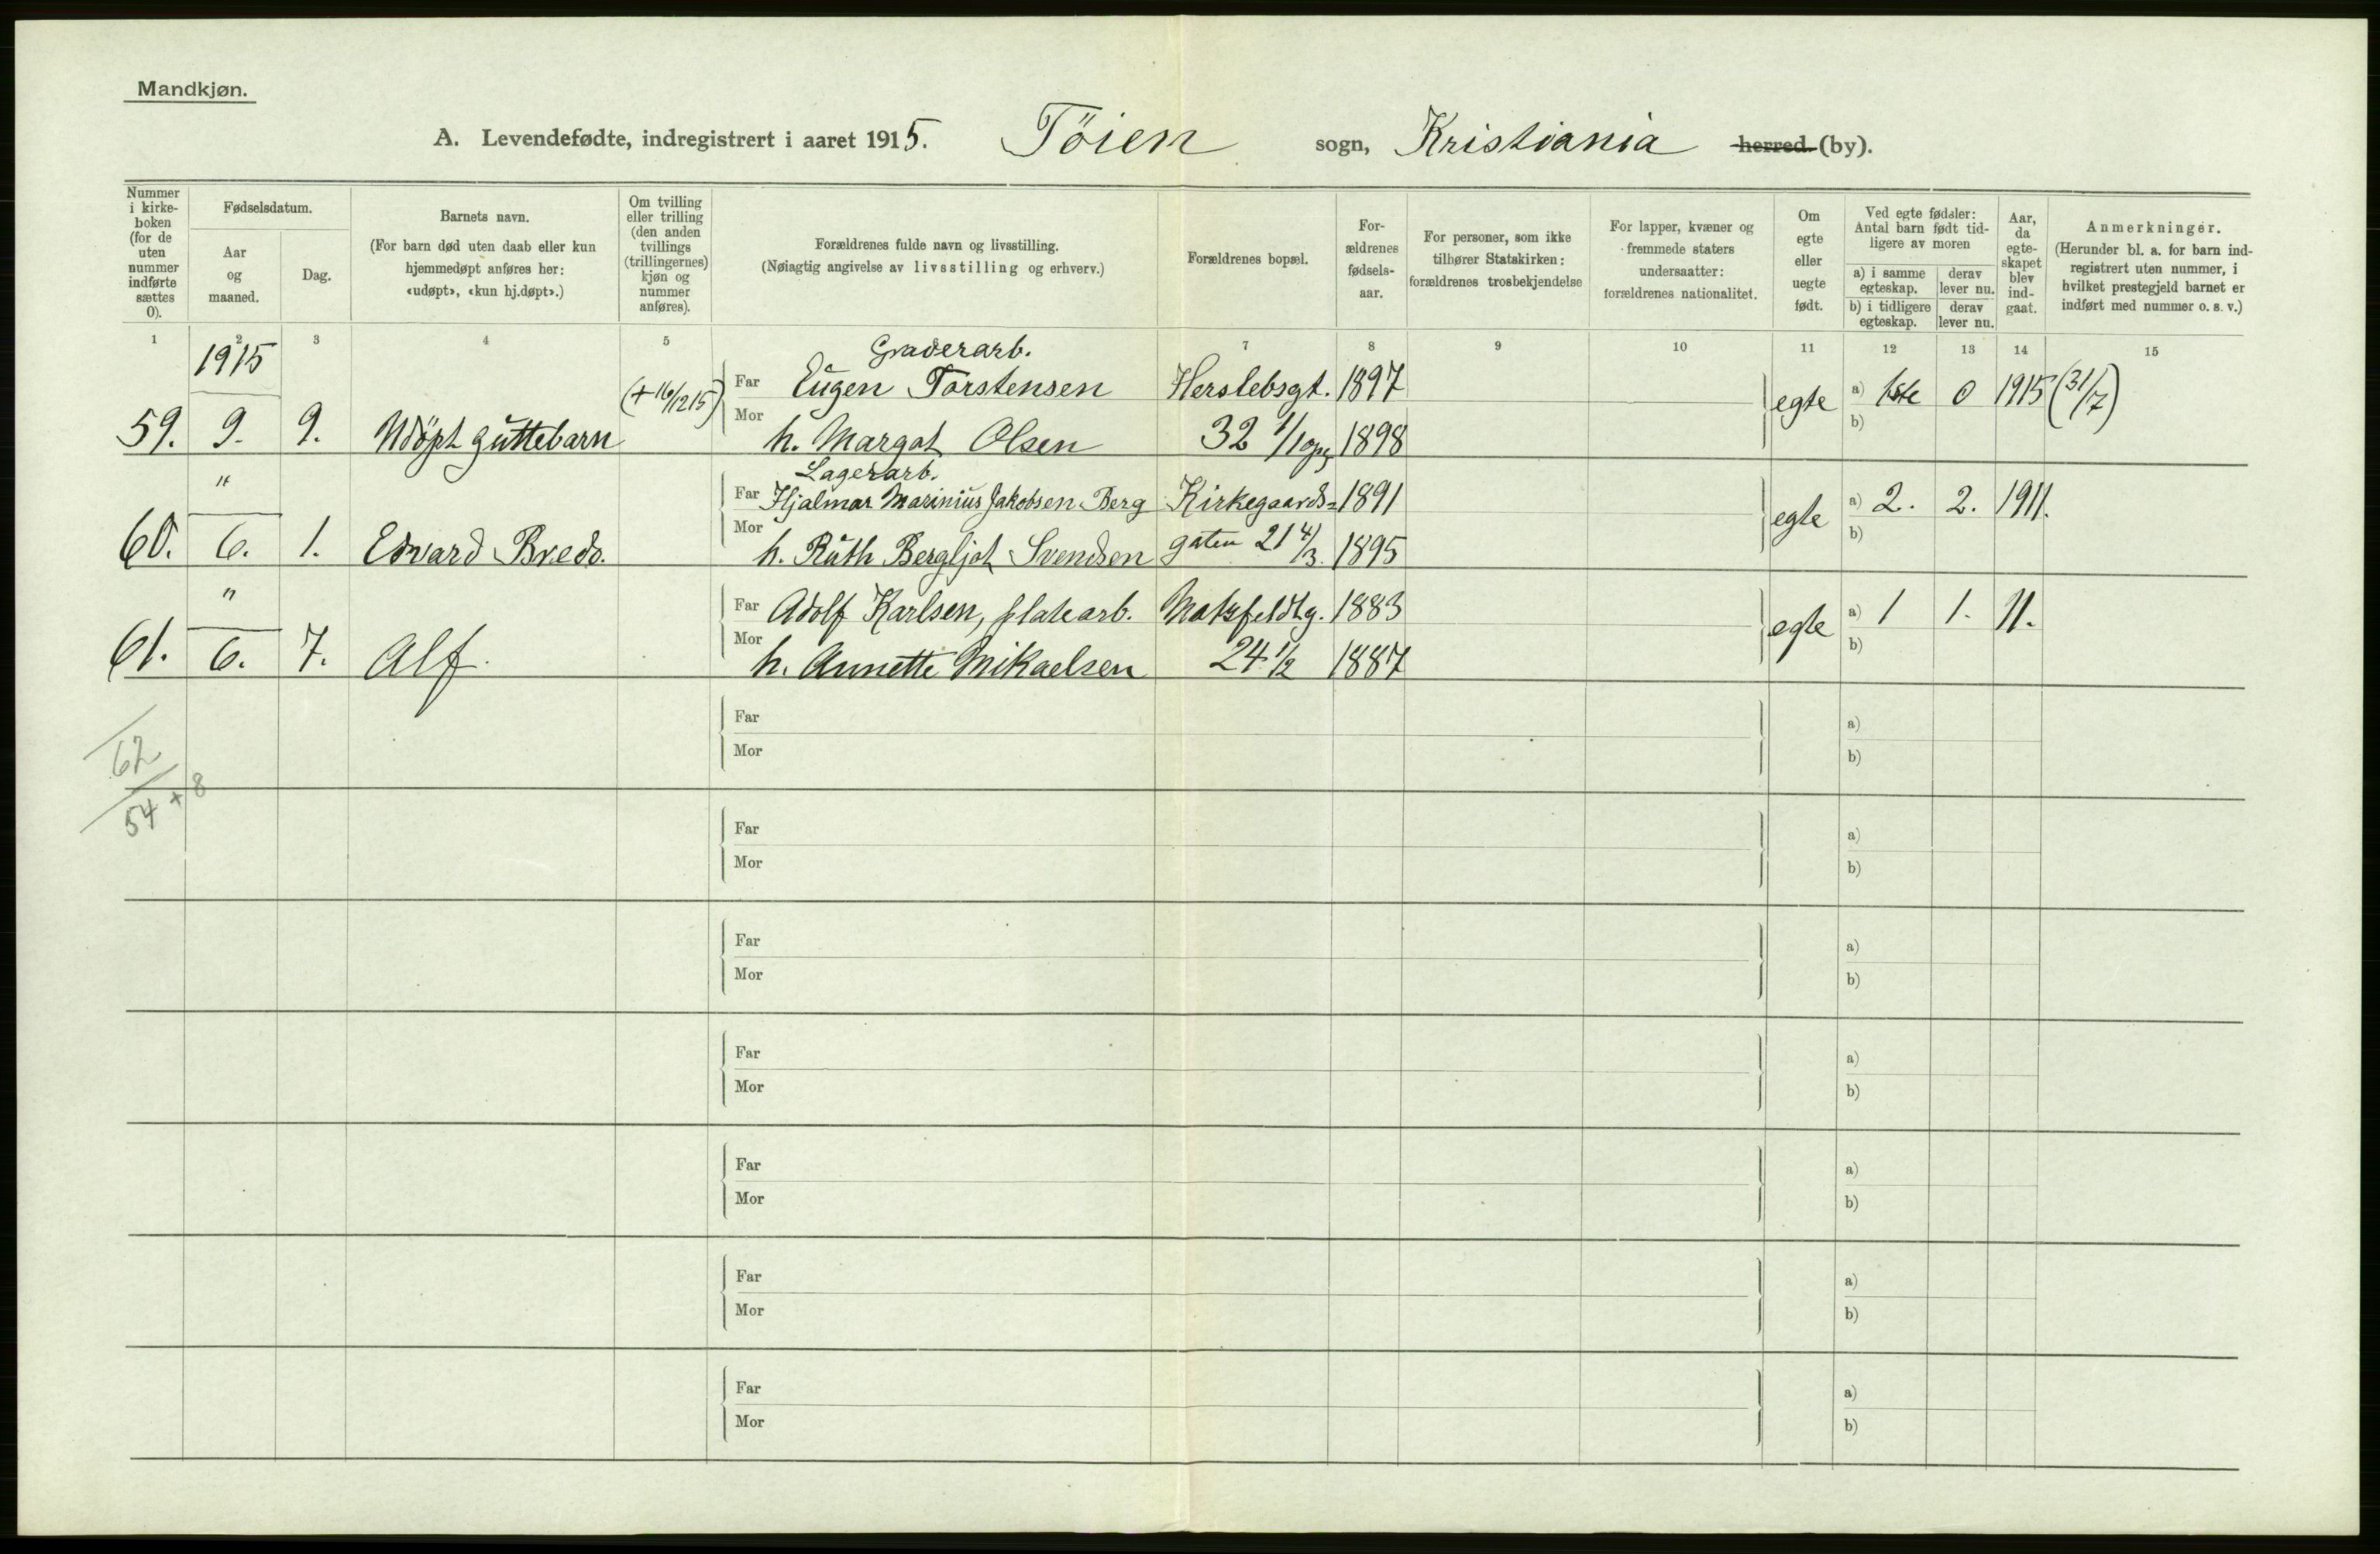 Mandkjøn.
A. Levendefødte, indregistrert i aaret 1915. Töien sogn, Kristiania herred (by).
Nummer i kirke-boken (for de uten nummer indførte sættes 0).
Fødselsdatum.
Aar og maaned.
Dag.
Barnets navn.
(For barn død uten daab eller kun hjemmedøpt anføres her: «udøpt», «kun hj.døpt».)
Om tvilling eller trilling (den anden tvillings (trillingernes) kjøn og nummer anføres).
Forældrenes fulde navn og livsstilling.
(Nøiagtig angivelse av livsstilling og erhverv.)
Forældrenes bopæl.
For-ældrenes fødsels-aar.
For personer, som ikke tilhører Statskirken: forældrenes trosbekjendelse
For lapper, kvæner og fremmede staters undersaatter: forældrenes nationalitet.
Om egte eller uegte født.
Ved egte fødsler: Antal barn født tid-ligere av moren
a) i samme egteskap.
derav lever nu.
b) i tidligere egteskap.
derav lever nu.
Aar, da egte-skapet blev ind-gaat.
Anmerkninger.
(Herunder bl. a. for barn ind-registrert uten nummer, i hvilket prestegjeld barnet er indført med nummer o. s. v.)
1 2 3 4 5 7 8 9 10 11 12 13 14 15
1915 Graderarb.
(+ 16/12 15) Far Eugen Torstensen Herslebsgt. 1897 egte a) 1ste 0 1915 (31/7)
59. 9. 9. Udöpt guttebarn Mor h. Margot Olsen 32 1/1 opg 1898 b)
" Lagerarb.
Far Hjalmar Marinius Jakobsen Berg Kirkegaards= 1891 egte a) 2. 2. 1911.
60. 6. 1. Edvard Bredo. Mor h. Ruth Bergljot Svendsen gaten 21 4/3. 1895 b)
" Far Adolf Karlsen, platearb. Motzfeldtg. 1883 egte a) 1 1. 11.
61. 6. 7. Alf. Mor h. Annette Mikaelsen 24 1/2 1887 b)
Far a)
62 Mor b)
54 + 8
Far a)
Mor b)
Far a)
Mor b)
Far a)
Mor b)
Far a)
Mor b)
Far a)
Mor b)
Far a)
Mor b)